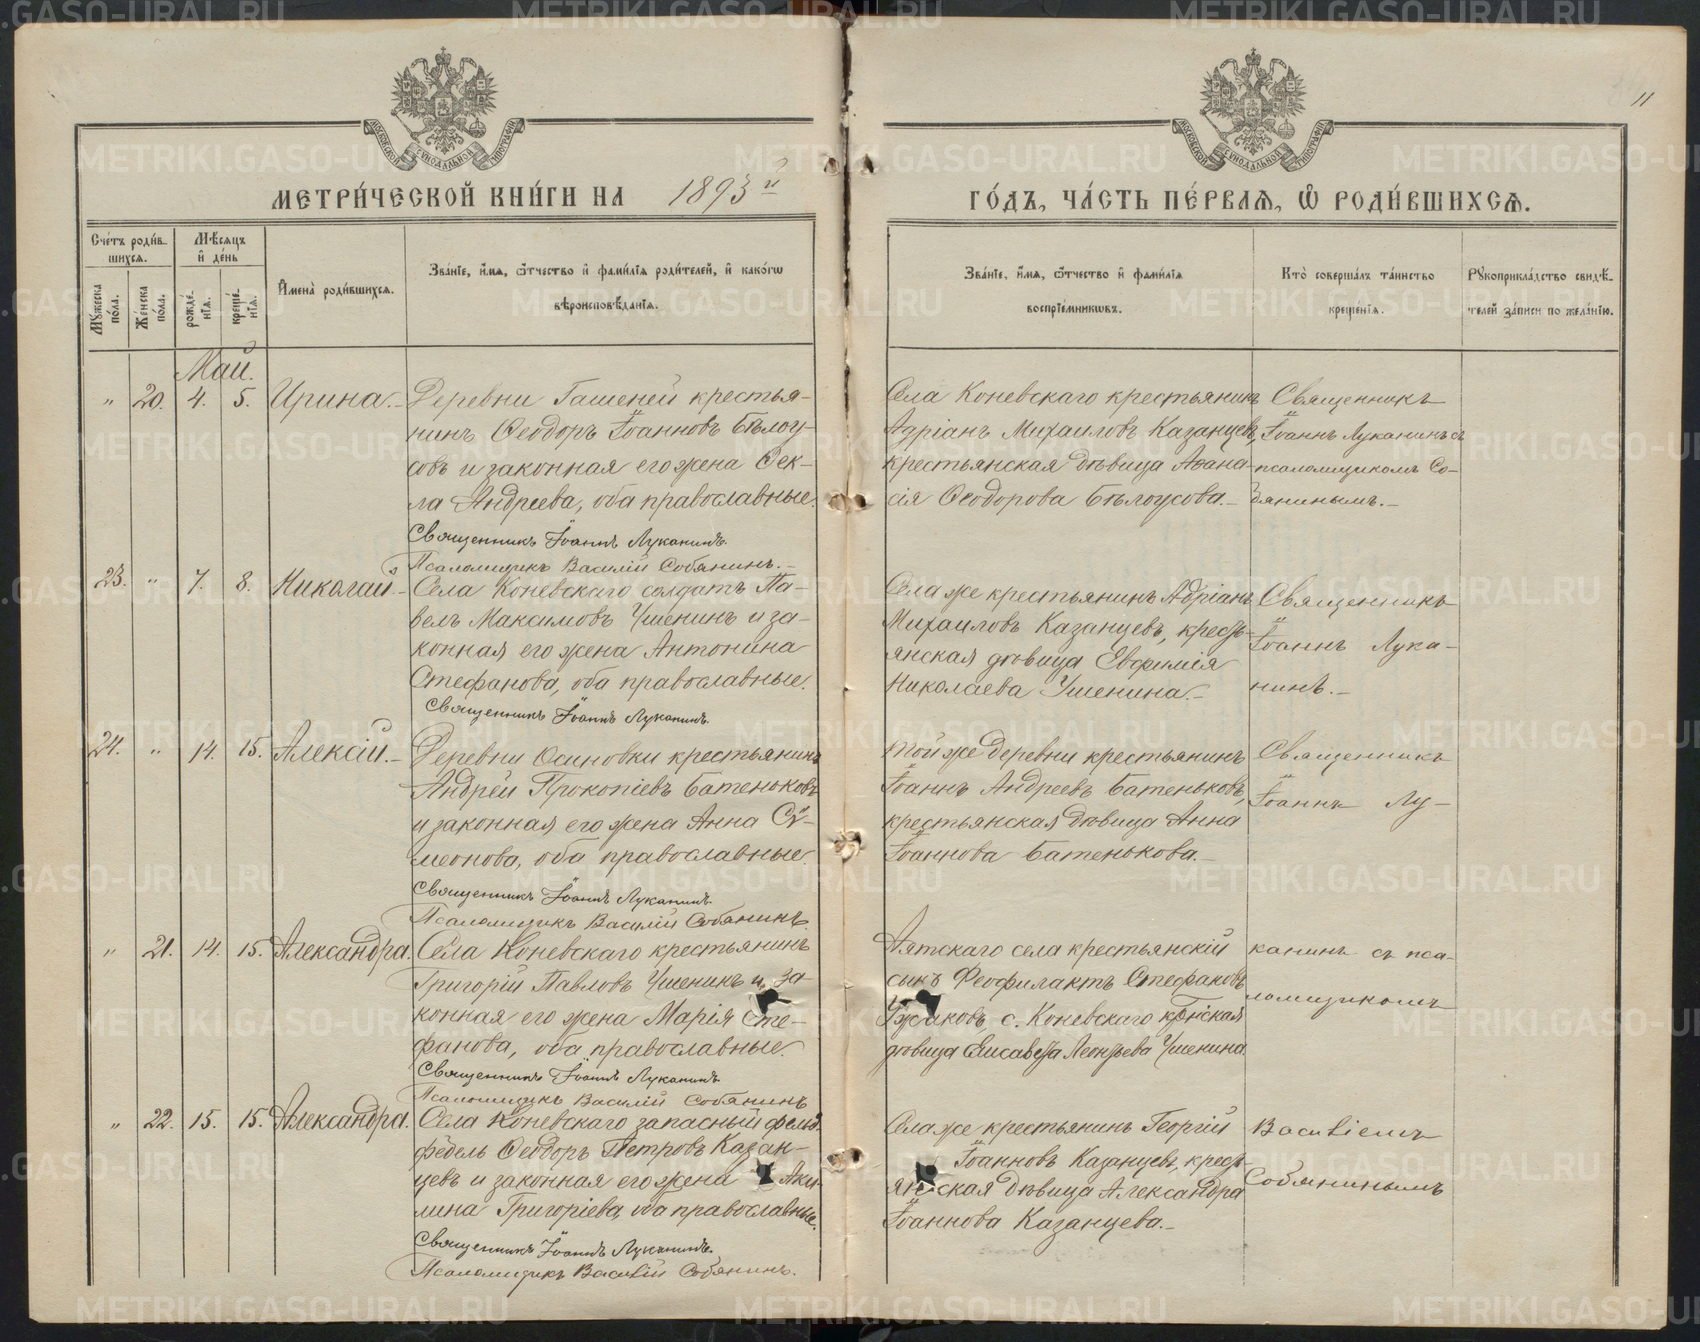 11
МОСКОВСКОЙ СѴНОДАЛЬНОЙ ТИПОГРАФІИ
МОСКОВСКОЙ СѴНОДАЛЬНОЙ ТИПОГРАФІИ
МЕТРИ́ЧЕСКОЙ КНИ́ГИ НА 1893 й
ГО́ДЪ, ЧА́СТЬ ПЕ́РВАЯ, Ѽ РОДИ́ВШИХСЯ.
Сче́тъ роди́в-
шихся.
Мѣ́сяцъ
и де́нь
Мꙋжеска по́ла.
Же́нска по́ла.
рожде́-нїя.
креще́-нїя.
И҆мена̀ роди́вшихся.
Зва́нїе, и҆́мя, ѻ҆́тчество и҆ фами́лїя роди́телей, и҆ како́гѡ
вѣроисповѣ́данїя.
Зва́нїе, и҆́мя, ѻ҆́тчество и҆ фами́лїя
воспрїе́мникѡвъ.
Кто̀ соверша́лъ та́инство
креще́нїя.
Рꙋкоприкла́дство свидѣ́-
телей за́писи по жела́нїю.
Май.
" 20. 4. 5. Ирина.-
Деревни Гашеней крестья-
нинъ Ѳеодоръ Іоанновъ Бѣлоу-
совъ и законная его жена Ѳек-
ла Андреева, оба православные.
Священникъ Іоаннъ Луканинъ.
Псаломщикъ Василій Собянинъ.-
Села Коневскаго крестьянинъ
Адріанъ Михаиловъ Казанцевъ,
крестьянская дѣвица Аѳана-
сія Ѳеодорова Бѣлоусова.-
Священникъ
Іоаннъ Луканинъ съ
псаломщикомъ Со-
бянинымъ.-
23. " 7. 8. Николай.-
Села Коневскаго солдатъ Па-
велъ Максимовъ Ушенинъ и за-
конная его жена Антонина
Стефанова, оба православные.
Священникъ Іоаннъ Луканинъ.
Села же крестьянинъ Адріанъ
Михаиловъ Казанцевъ, кресть-
янская дѣвица Евфимія
Николаева Ушенина.-
Священникъ
Іоаннъ Лука-
нинъ.-
24. " 14. 15. Алексій.-
Деревни Осиновки крестьянинъ
Андрей Прокопіевъ Батеньковъ
и законная его жена Анна Сѵ-
меонова, оба православные.
Священникъ Іоаннъ Луканинъ.
Псаломщикъ Василій Собянинъ.
Той же деревни крестьянинъ
Іоаннъ Андреевъ Батеньковъ,
крестьянская дѣвица Анна
Іоаннова Батенькова.-
Священникъ
Іоаннъ Лу-
" 21. 14. 15. Александра.
Села Коневскаго крестьянинъ
Григорій Павловъ Ушенинъ и за-
конная его жена Марія Сте-
фанова, оба православные.
Священникъ Іоаннъ Луканинъ
Псаломщикъ Василій Собянинъ
Аятскаго села крестьянскій
сынъ Феофилактъ Стефановъ
с. Коневскаго кр̃нская
дѣвица Елисавета Леонтьева Ушенина.
канинъ съ пса-
ломщикомъ
" 22. 15. 15. Александра.
Села Коневскаго запасный фельд-
фебель Ѳеодоръ Петровъ Казан-
цевъ и законная его жена Аки-
лина Григоріева, оба православные.
Священникъ Іоаннъ Луканинъ.
Псаломщикъ Василій Собянинъ.
Села же крестьянинъ Георгій
Іоанновъ Казанцевъ, кресть-
янская дѣвица Александра
Іоаннова Казанцева.-
Василіемъ
Собянинымъ
METRIKI.GASO-URAL.RU